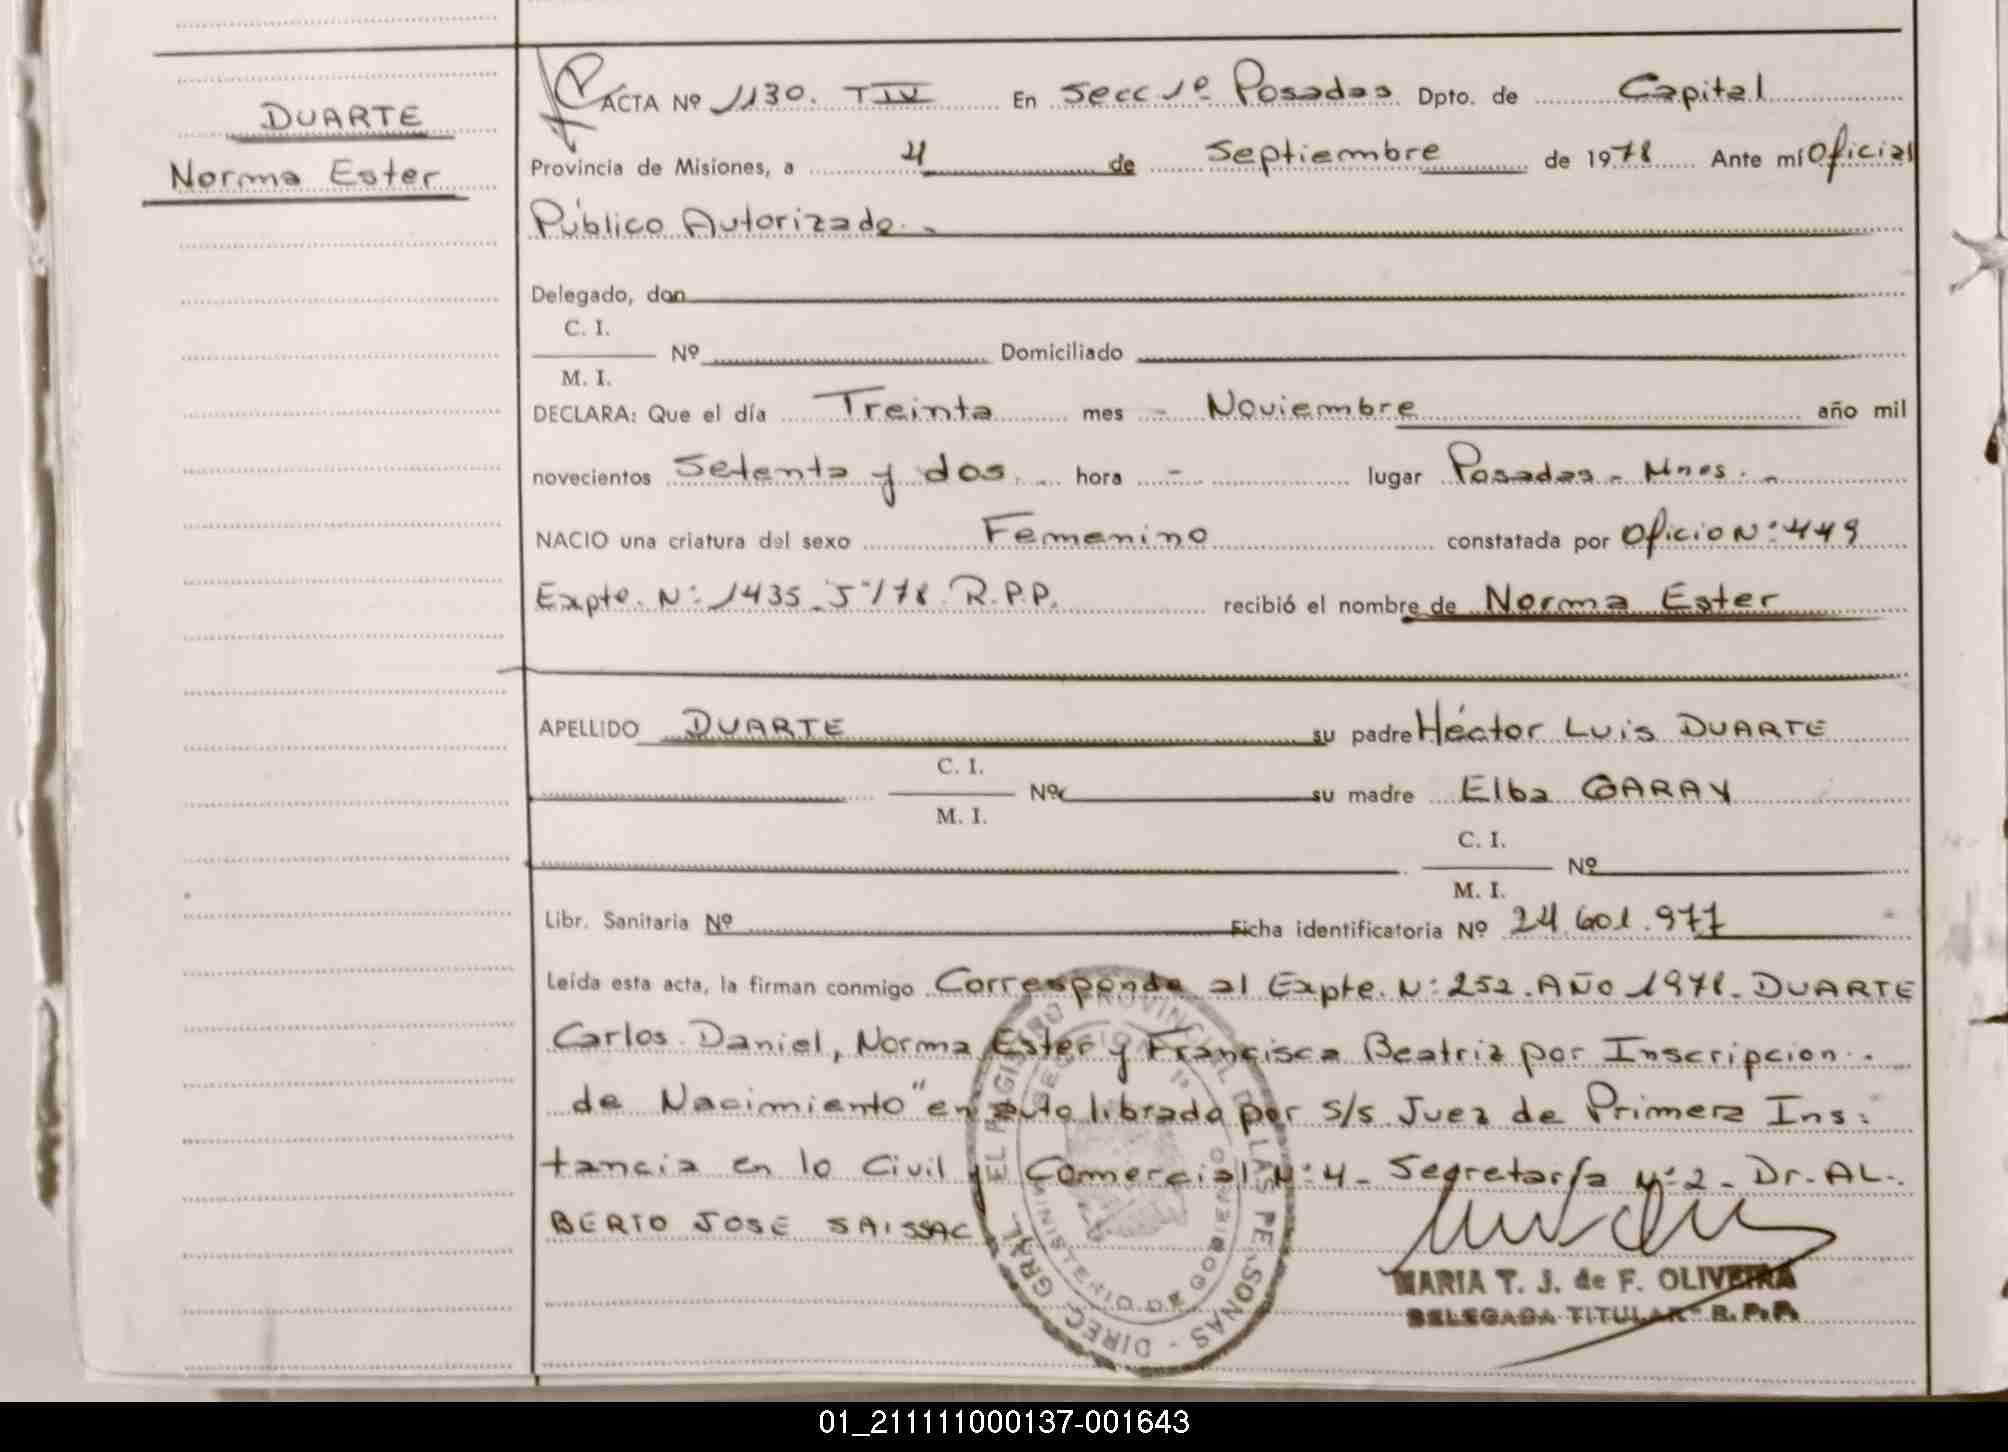 DUARTE
Norma Ester
ACTA Nº 1130. T IV En Secc 1º Posadas Dpto. de Capital
Provincia de Misiones, a 4 de Septiembre de 1978 Ante mí Oficial
Público Autorizado.-
Delegado, don
C. I.
Nº Domiciliado
M. I.
DECLARA: Que el día Treinta mes - Noviembre año mil
novecientos Setenta y dos. hora - lugar Posadas - Mnes. -
NACIO una criatura del sexo Femenino constatada por Oficio Nº 449
Expte. Nº 1435 - J - /78 R.P.P. recibió el nombre de Norma Ester
APELLIDO DUARTE su padre Héctor Luis DUARTE
C. I.
Nº su madre Elba GARAY
M. I.
C. I.
Nº
M. I.
Libr. Sanitaria Nº Ficha identificatoria Nº 24.601.977
Leída esta acta, la firman conmigo Corresponde al Expte. Nº 252. AÑO 1978. DUARTE
Carlos Daniel, Norma Ester y Francisca Beatriz por Inscripcion..
de Nacimiento" en auto librada por S/S Juez de Primera Ins:
tancia en lo Civil y Comercial Nº 4 - Segretaría Nº 2 - Dr. AL-.
BERTO JOSE SAISSAC
DIREC. GRAL. EL REGISTRO PROVINCIAL DE LAS PERSONAS -
MINISTERIO DE GOBIERNO
MARIA T. J. de F. OLIVEIRA
DELEGADA TITULAR R. P. P.
01_211111000137-001643